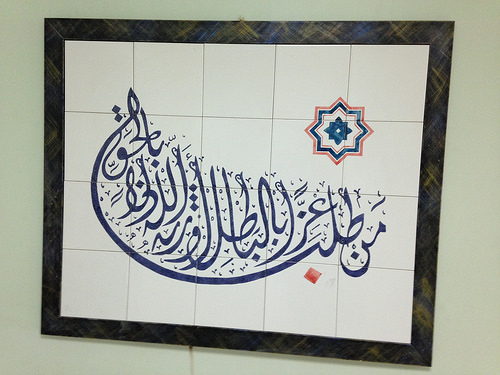 من طلب عزا بالباطل أورثه الله ذلا بالحق